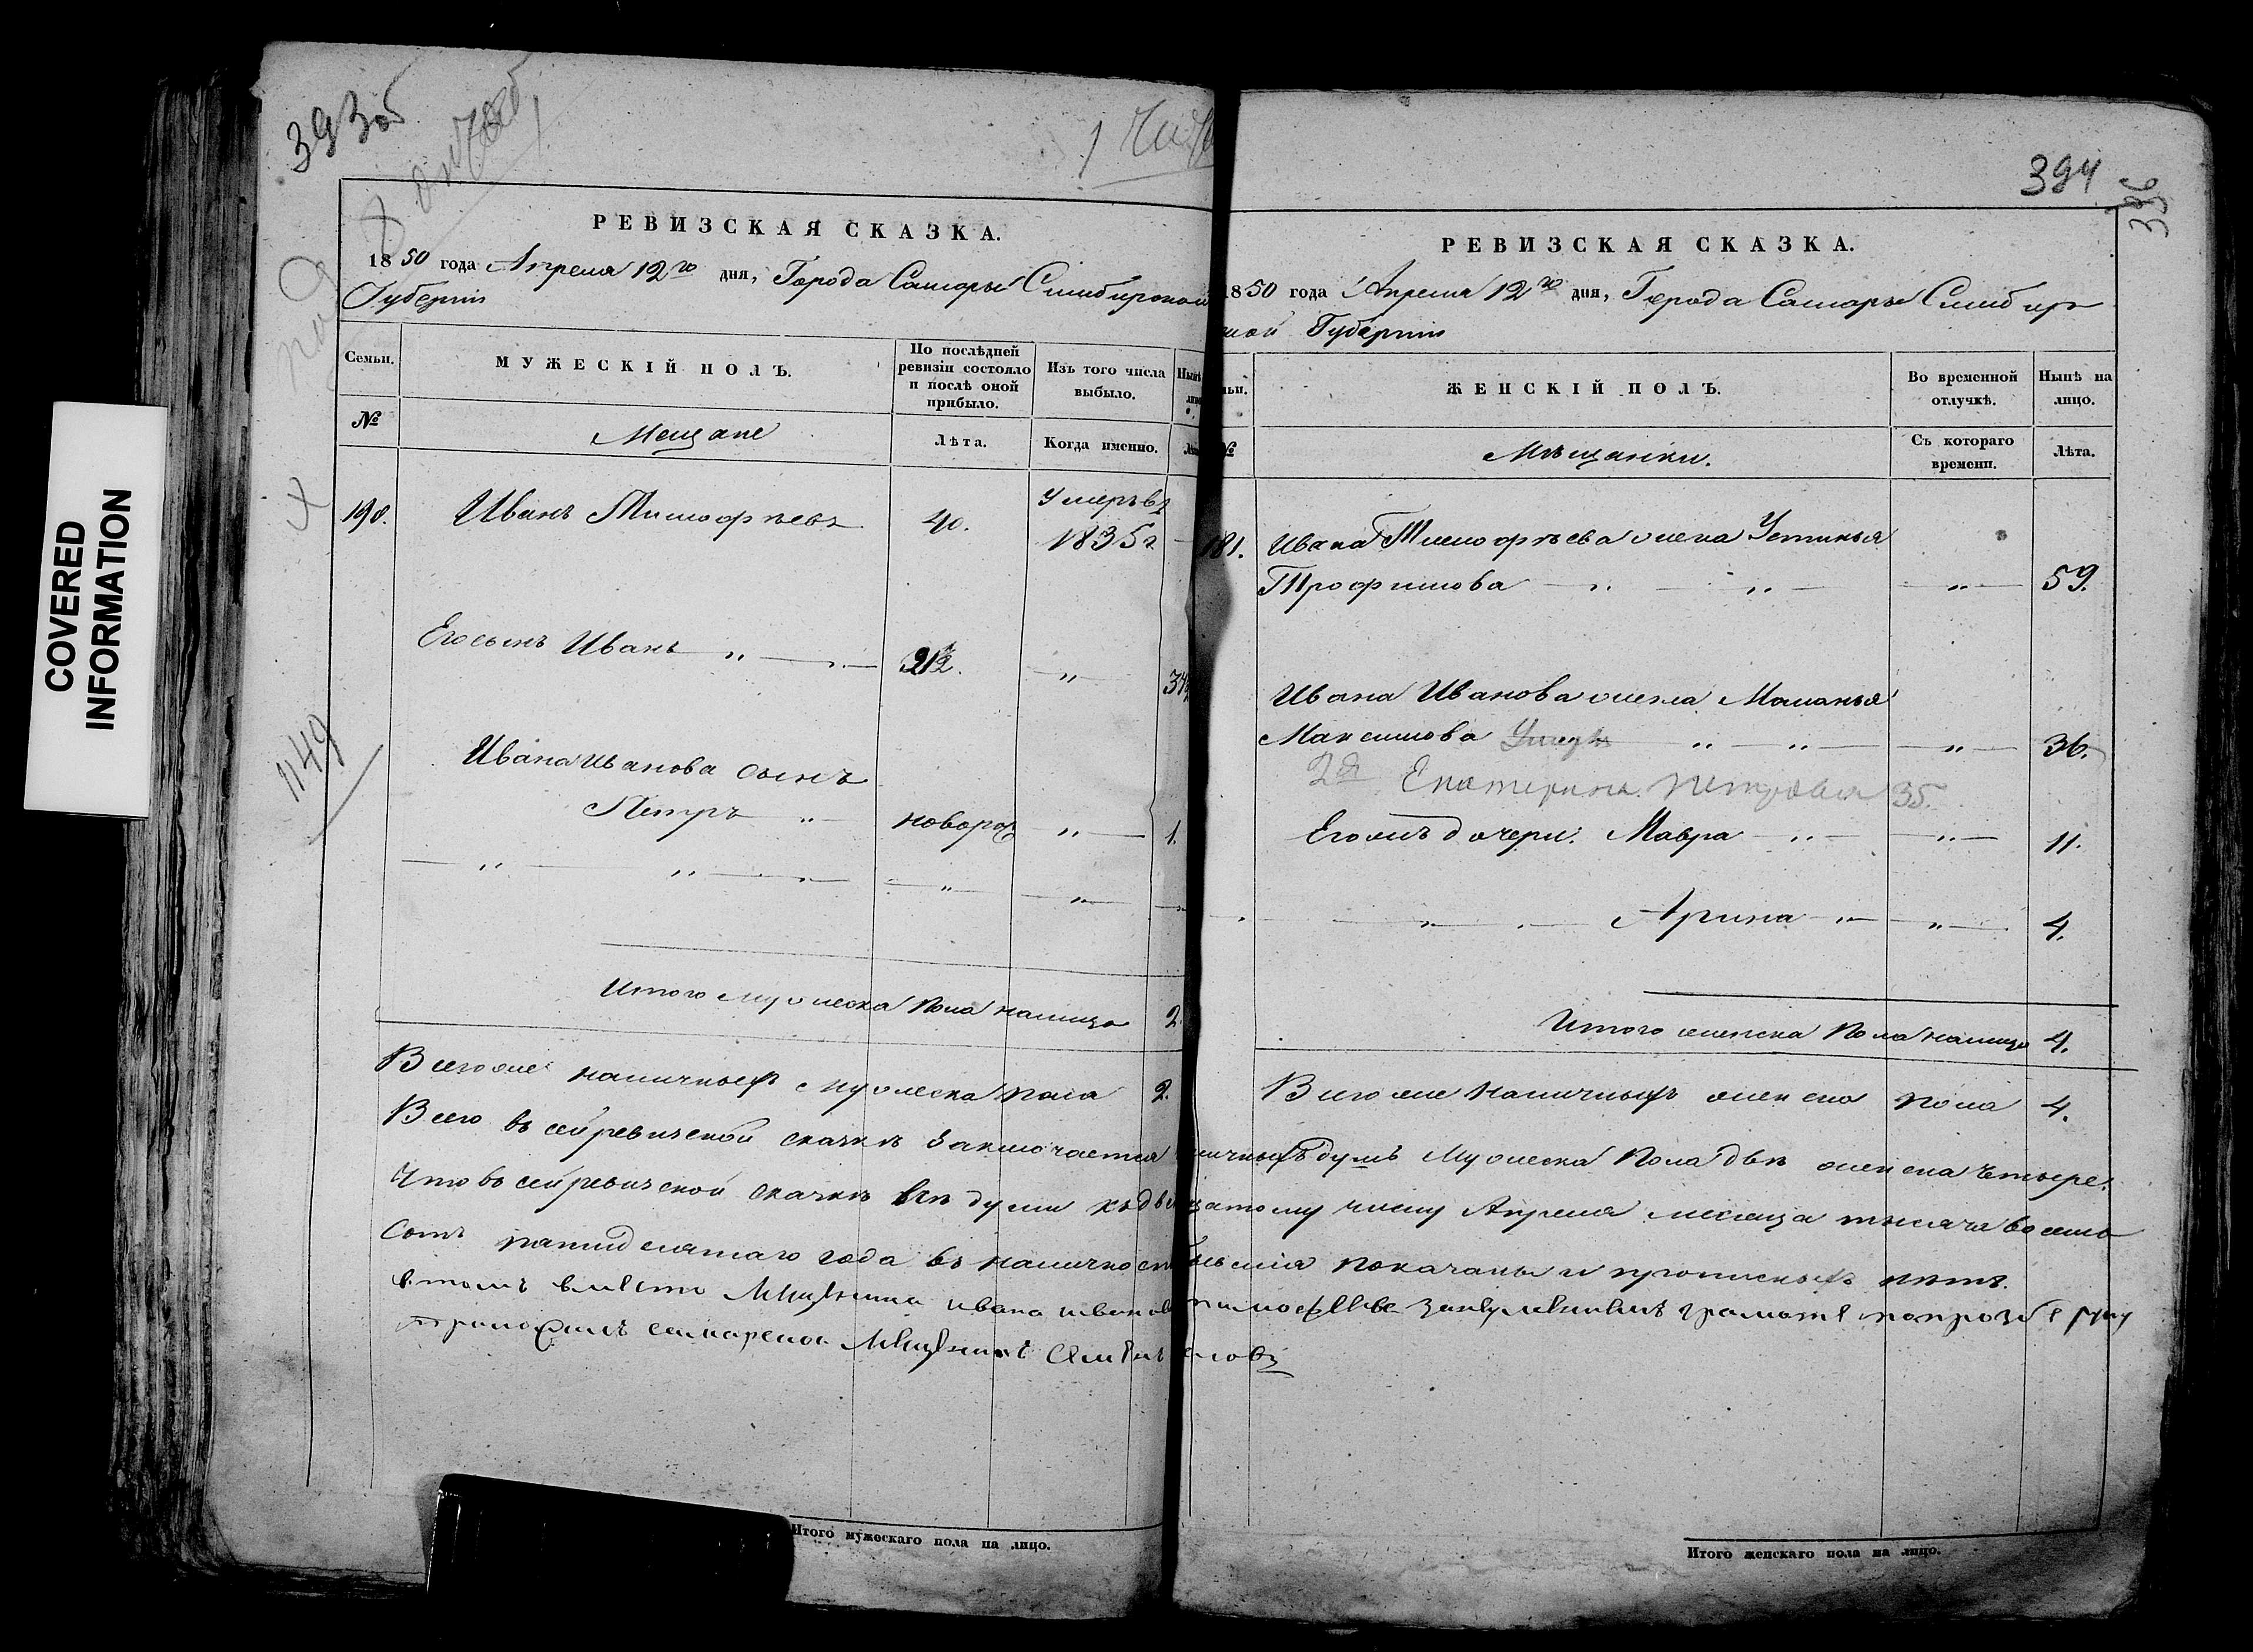 COVERED
INFORMATION
393об
РЕВИЗСКАЯ СКАЗКА.
1850 года Апреля 12го дня, Города Самары Симбирской
Губернии
Семьи.
МУЖЕСКІЙ ПОЛЪ.
По послѣдней
ревизіи состояло
и послѣ оной
прибыло.
Изъ того числа
выбыло.
№
Мещане
Лѣта.
Когда именно.
198. Иванъ Тимофѣевъ 40. Умеръ въ
1835 г.
Его сынъ Иванъ 34
Ивана Иванова сынъ
Петръ новорож 1.
1149
Итого мужеска пола налицо 2.
Всего же наличныхъ мужеска пола 2.
Итого мужескаго пола на лицо.
394
396
РЕВИЗСКАЯ СКАЗКА.
1850 года Апреля 12го дня, Города Самары Симбир
ской Губернии
ЖЕНСКІЙ ПОЛЪ.
Во временной
отлучкѣ.
Нынѣ на
лицо.
№
Мѣщанки.
Съ котораго
времени.
Лѣта.
181. Ивана Тимофѣева жена Устинья
Трофимова 59.
Ивана Иванова жена Маланья
Максимова 36.
2я Екатерина Петровна 35.
Его жъ дочери: Мавра 11.
Арина 4.
Итого женска пола налицо 4.
Всего же наличныхъ женска пола 4.
Всего въ сей ревизской сказкѣ заключается наличныхъ душъ мужеска пола двѣ женска четыре.
Что въ сей ревизской сказкѣ всѣ души къ двенадцатому числу Апреля месяца тысяча восемь
сотъ пятидесятаго года въ наличности бывшія показаны и прописныхъ нѣтъ.
въ томъ вместо Мещанина Ивана Иванова Тимофеева
Итого женскаго пола на лицо.